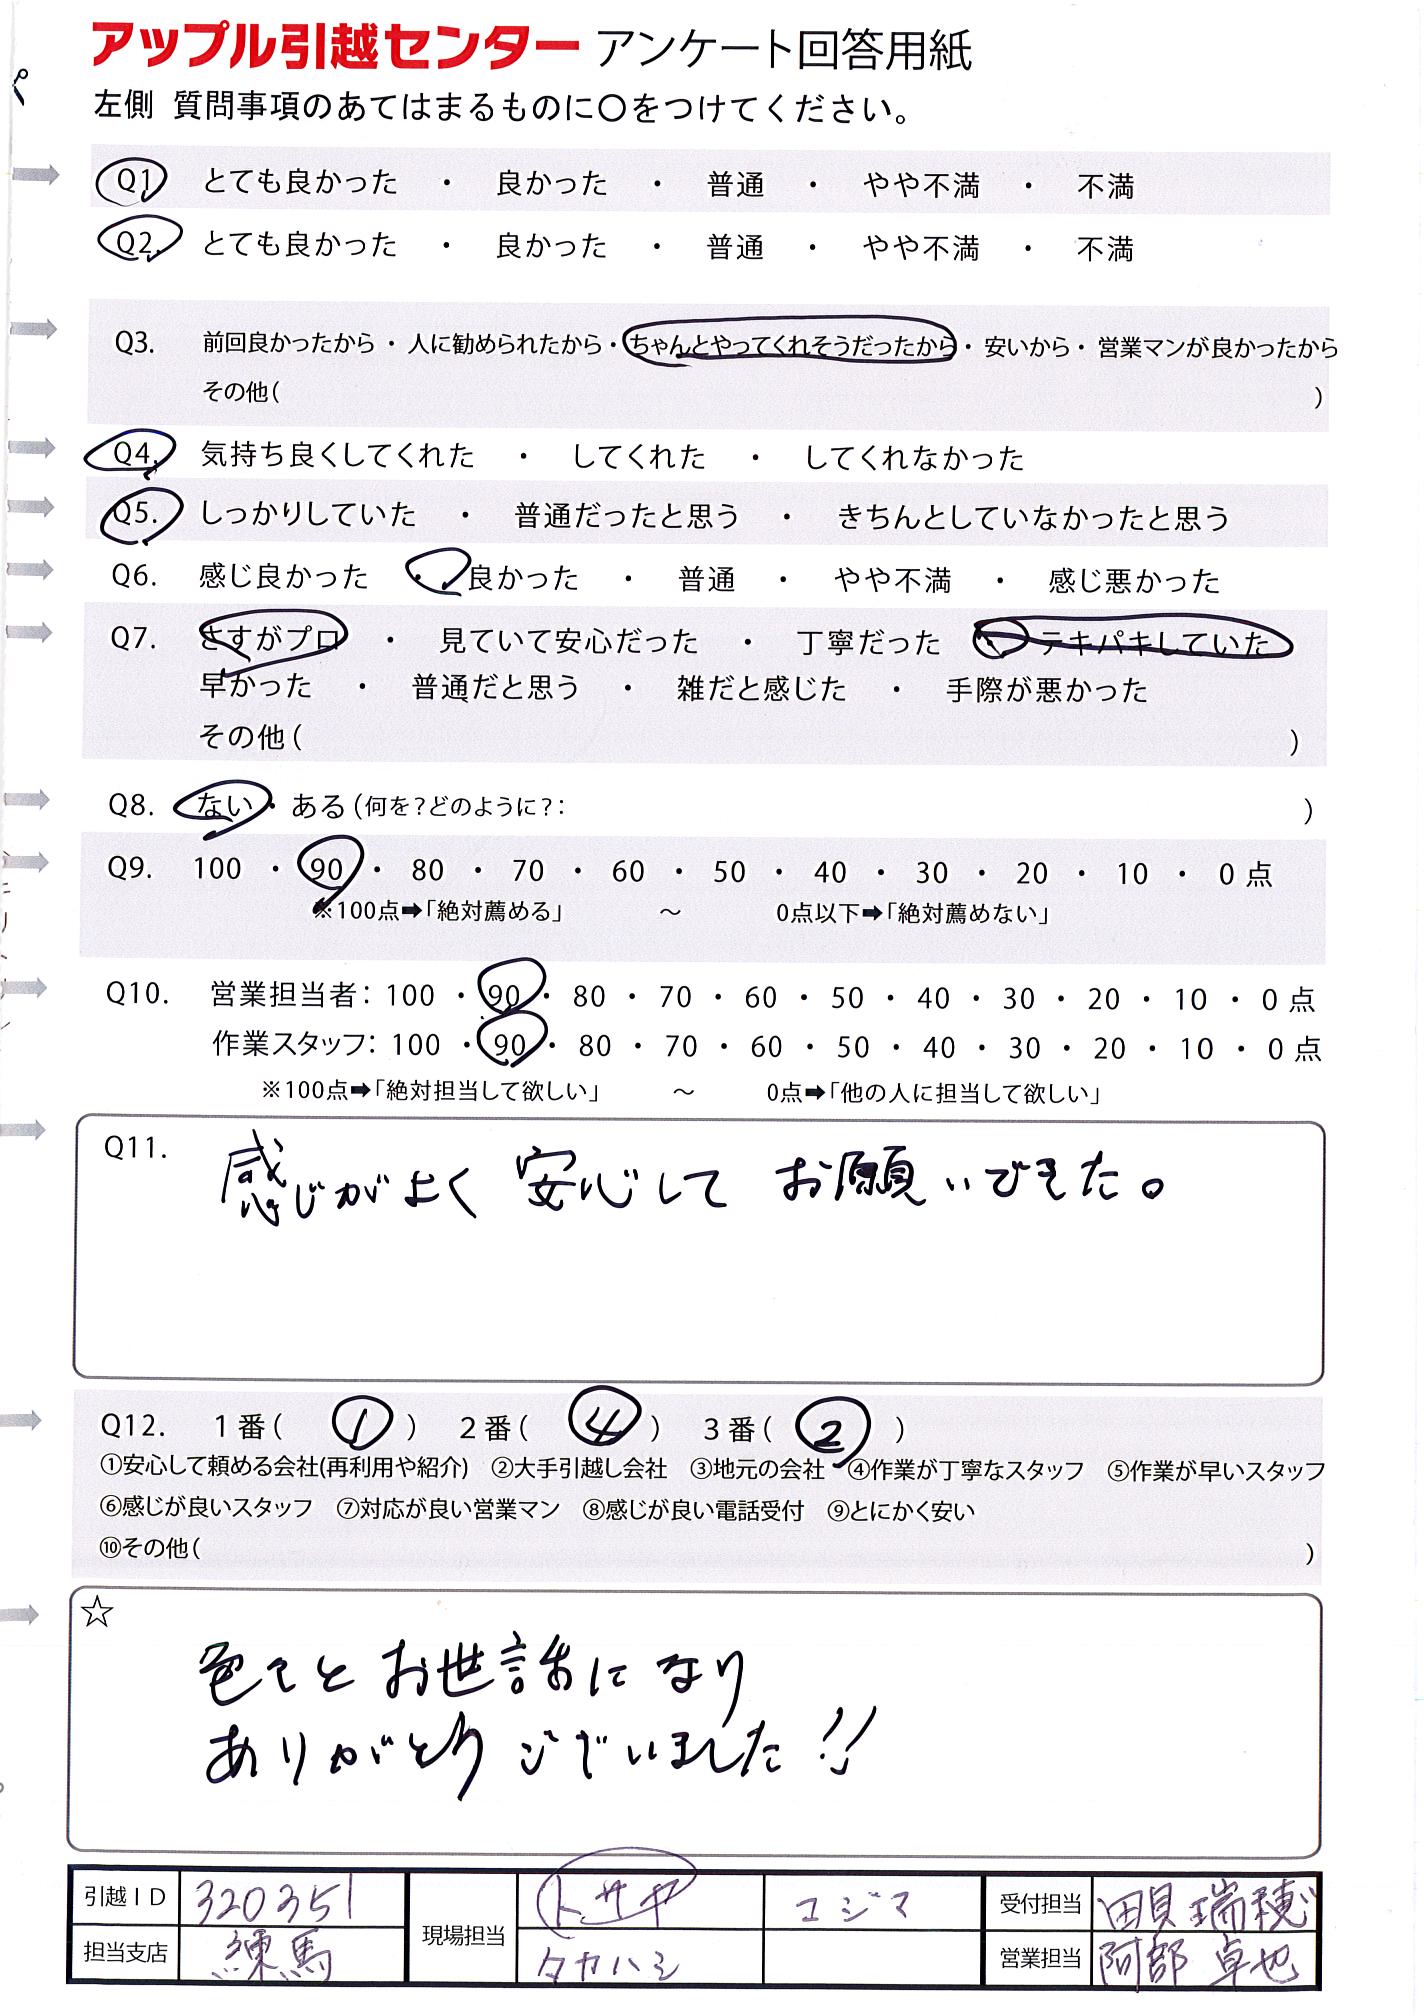 アップル引越センター アンケート回答用紙
左側 質問事項のあてはまるものに〇をつけてください。
Q1. とても良かった ・ 良かった ・ 普通 ・ やや不満 ・ 不満
Q2. とても良かった ・ 良かった ・ 普通 ・ やや不満 ・ 不満
Q3. 前回良かったから ・ 人に勧められたから ・ ちゃんとやってくれそうだったから ・ 安いから ・ 営業マンが良かったから
その他( )
Q4. 気持ち良くしてくれた ・ してくれた ・ してくれなかった
Q5. しっかりしていた ・ 普通だったと思う ・ きちんとしていなかったと思う
Q6. 感じ良かった ・ 良かった ・ 普通 ・ やや不満 ・ 感じ悪かった
Q7. さすがプロ ・ 見ていて安心だった ・ 丁寧だった ・ テキパキしていた
早かった ・ 普通だと思う ・ 雑だと感じた ・ 手際が悪かった
その他( )
Q8. ない ・ ある(何を?どのように?: )
Q9. 100 ・ 90 ・ 80 ・ 70 ・ 60 ・ 50 ・ 40 ・ 30 ・ 20 ・ 10 ・ 0 点
※100点➡「絶対薦める」 ～ 0点以下➡「絶対薦めない」
Q10. 営業担当者: 100 ・ 90 ・ 80 ・ 70 ・ 60 ・ 50 ・ 40 ・ 30 ・ 20 ・ 10 ・ 0 点
作業スタッフ: 100 ・ 90 ・ 80 ・ 70 ・ 60 ・ 50 ・ 40 ・ 30 ・ 20 ・ 10 ・ 0 点
※100点➡「絶対担当して欲しい」 ～ 0点➡「他の人に担当して欲しい」
Q11. 感じがよく 安心して お願いできた。
Q12. 1番( ① ) 2番( ④ ) 3番( ② )
①安心して頼める会社(再利用や紹介) ②大手引越し会社 ③地元の会社 ④作業が丁寧なスタッフ ⑤作業が早いスタッフ
⑥感じが良いスタッフ ⑦対応が良い営業マン ⑧感じが良い電話受付 ⑨とにかく安い
⑩その他( )
☆
色々とお世話になり
ありがとうございました!!
引越ID 320351 現場担当 トサヤ コジマ 受付担当 田貝瑞穂
担当支店 練馬 タカハシ 営業担当 阿部 卓也